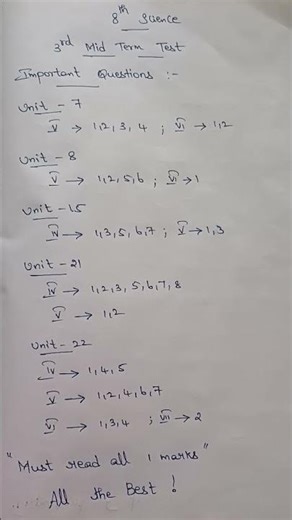 8th Science
3rd Mid Term Test
Important Questions :-
Unit - 7
V → 1,2,3,4 ; VI → 1,2
Unit - 8
V → 1,2,5,6 ; VI → 1
Unit - 15
IV → 1,3,5,6,7 ; V → 1,3
Unit - 21
IV → 1,2,3,5,6,7,8
V → 1,2
Unit - 22
IV → 1,4,5
V → 1,2,4,6,7
VI → 1,3,4 ; VII → 2
"Must read all 1 marks"
All the Best !